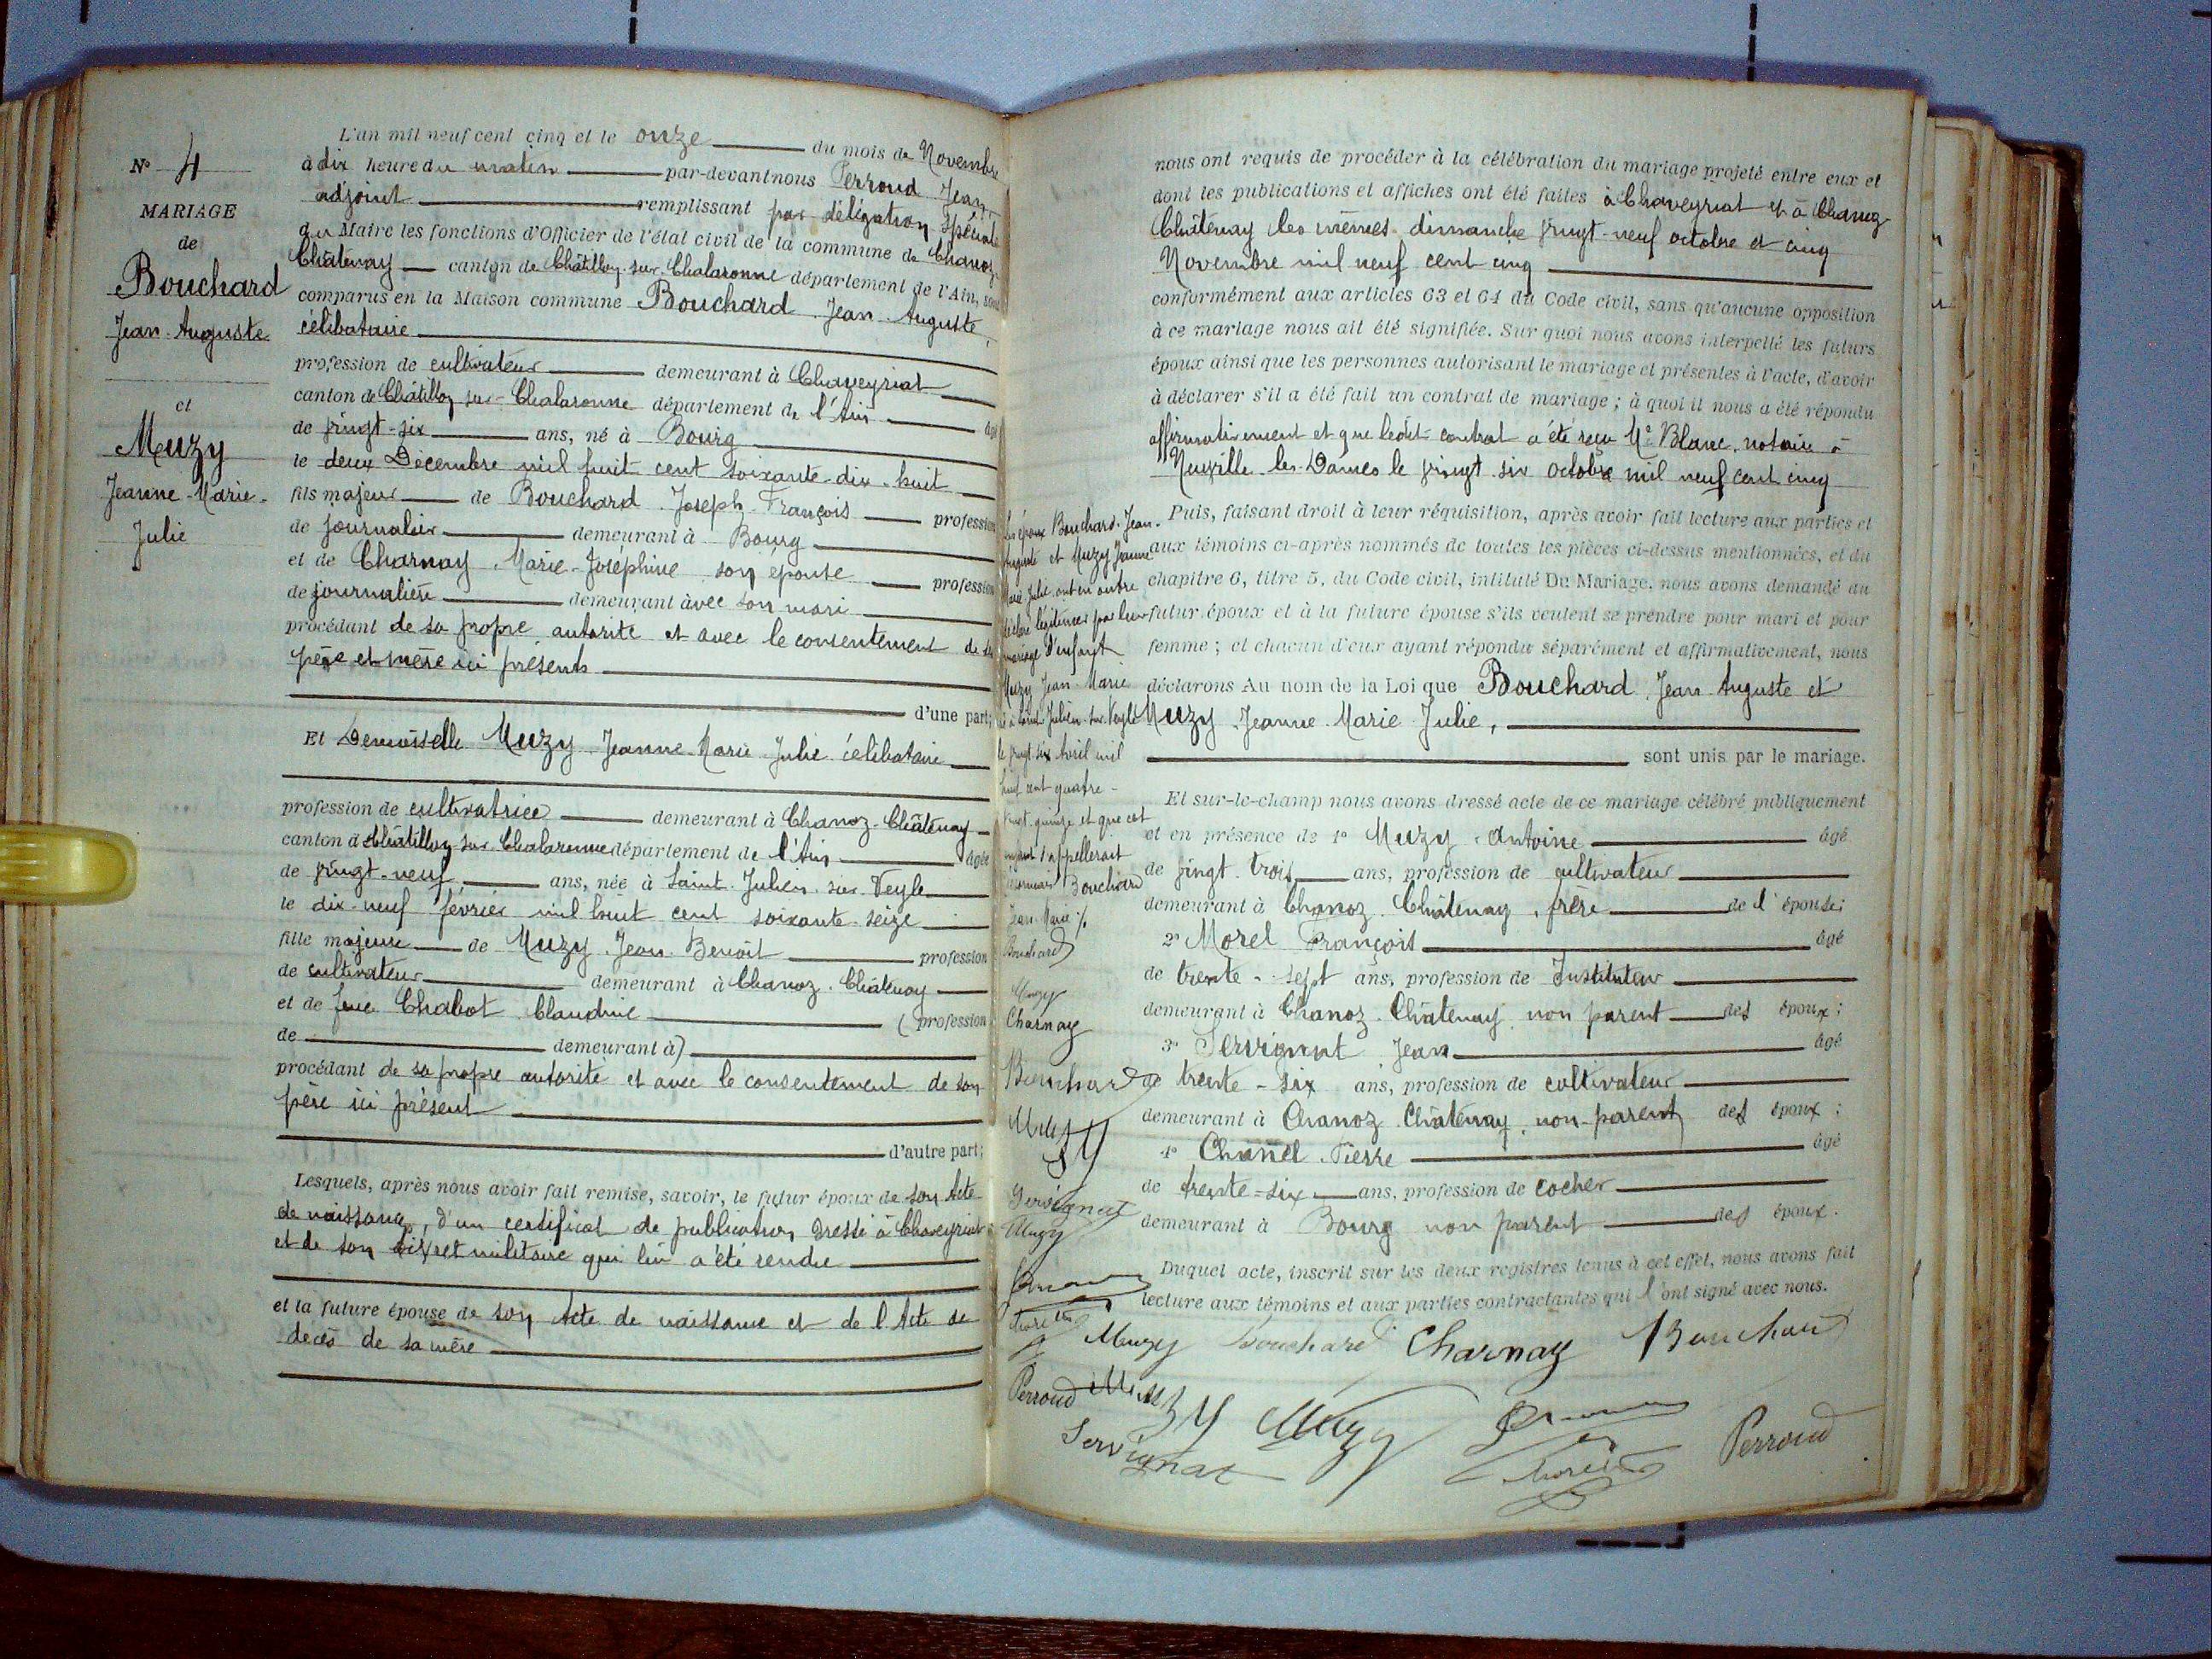 N° 4
MARIAGE
de
Bouchard
Jean-Auguste
et
Muzy
Jeanne-Marie-
Julie
L'an mil neuf cent cinq et le onze du mois de Novembre
à dix heure du matin par-devant nous Perroud Jean,
adjoint remplissant par délégation spéciale
du Maire les fonctions d'Officier de l'état civil de la commune de Chanoz-
Châtenay canton de Châtillon-sur-Chalaronne département de l'Ain, sont
comparus en la Maison commune Bouchard Jean-Auguste,
célibataire
profession de cultivateur demeurant à Chaveyriat
canton de Châtillon sur-Chalaronne département de l'Ain âgé
de vingt-six ans, né à Bourg
le deux Décembre mil huit cent soixante-dix-huit
fils majeur de Bouchard Joseph-François profession
de journalier demeurant à Bourg
et de Charnay Marie-Joséphine son épouse profession
de journalière demeurant avec son mari
procédant de sa propre autorité et avec le consentement de ses
père et mère ici présents
d'une part;
Et Demoiselle Muzy Jeanne-Marie-Julie célibataire
profession de cultivatrice demeurant à Chanoz-Châtenay
canton d Châtillon-sur-Chalaronne département de l'Ain âgée
de vingt-neuf ans, née à Saint-Julien-sur-Veyle
le dix-neuf février mil huit cent soixante-seize
fille majeure de Muzy Jean-Benoît profession
de cultivateur demeurant à Chanoz-Châtenay
et de feue Chabot Claudine (profession
de demeurant à)
procédant de sa propre autorité et avec le consentement de son
père ici présent
d'autre part;
Lesquels, après nous avoir fait remise, savoir, le futur époux de son Acte
de naissance, d'un certificat de publication dressé à Chaveyriat
et de son livret militaire qui lui a été rendu
et la future épouse de son Acte de naissance et de l'Acte de
décès de sa mère
nous ont requis de procéder à la célébration du mariage projeté entre eux et
dont les publications et affiches ont été faites à Chaveyriat et à Chanoz-
Châtenay les mêmes dimanche vingt-neuf octobre et cinq
Novembre mil neuf cent cinq
conformément aux articles 63 et 64 du Code civil, sans qu'aucune opposition
à ce mariage nous ait été signifiée. Sur quoi nous avons interpellé les futurs
époux ainsi que les personnes autorisant le mariage et présentes à l'acte, d'avoir
à déclarer s'il a été fait un contrat de mariage; à quoi il nous a été répondu
affirmativement et que ledit contrat a été reçu Me Blanc, notaire à
Neuville-les-Dames le vingt six octobre mil neuf cent cinq
Puis, faisant droit à leur réquisition, après avoir fait lecture aux parties et
aux témoins ci-après nommés de toutes les pièces ci-dessus mentionnées, et du
chapitre 6, titre 5, du Code civil, intitulé Du Mariage, nous avons demandé au
futur époux et à la future épouse s'ils veulent se prendre pour mari et pour
femme; et chacun d'eux ayant répondu séparément et affirmativement, nous
déclarons Au nom de la Loi que Bouchard Jean-Auguste et
Muzy Jeanne-Marie-Julie,
sont unis par le mariage.
Et sur-le-champ nous avons dressé acte de ce mariage célébré publiquement
et en présence de 1° Muzy Antoine âgé
de vingt-trois ans, profession de cultivateur
demeurant à Chanoz-Châtenay, frère de l'épouse;
2° Morel François âgé
de trente-sept ans, profession de Instituteur
demeurant à Chanoz-Châtenay non parent des époux;
3° Servignat Jean âgé
de trente-six ans, profession de cultivateur
demeurant à Chanoz-Châtenay, non-parent des époux;
4° Chanel Pierre âgé
de trente=six ans, profession de cocher
demeurant à Bourg non parent des époux.
Duquel acte, inscrit sur les deux registres tenus à cet effet, nous avons fait
lecture aux témoins et aux parties contractantes qui l'ont signé avec nous.
Muzy Bouchard Charnay Bouchard
Muzy Muzy Perroud
Servignat
Les époux Bouchard Jean-
Auguste et Muzy Jeanne
Marie Julie ont en outre
déclaré légitimer par leur
mariage l'enfant
Muzy Jean-Marie
né à Saint-Julien-sur-Veyle
le vingt six Avril mil
huit cent quatre-
vingt-quinze et que cet
enfant s'appellerait
désormais Bouchard
Jean-Marie ./.
Bouchard
Muzy
Charnay
Bouchard
Muzy
Servignat
Muzy
Morel
Perroud